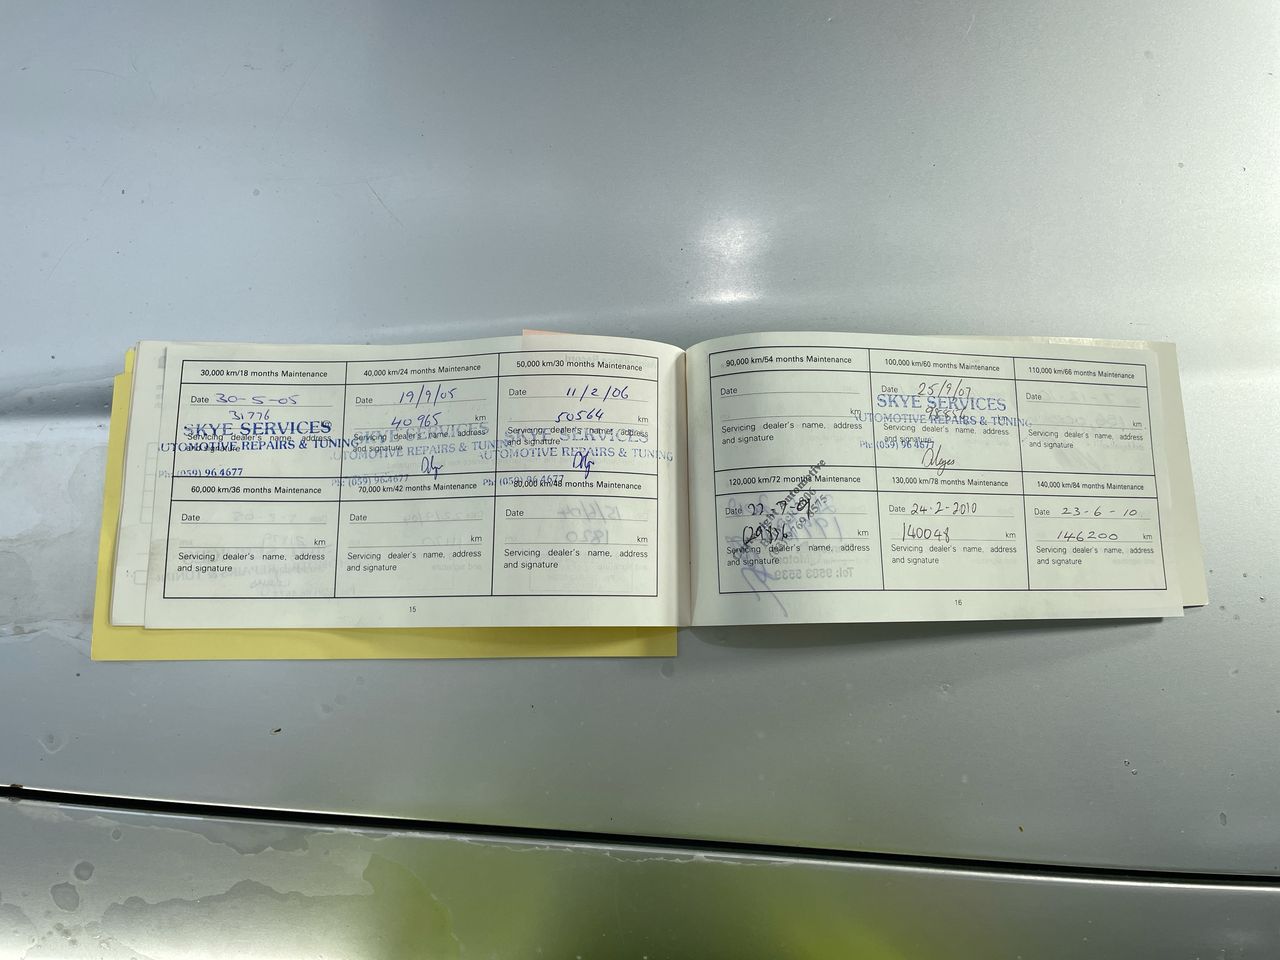 30,000 km/18 months Maintenance
Date 30-5-05
31776
Servicing dealer's name, address
SKYE SERVICES
AUTOMOTIVE REPAIRS & TUNING
Ph: (059) 96 4677
40,000 km/24 months Maintenance
Date 19/9/05
40965 km
Servicing dealer's name, address
and signature
SKYE SERVICES
AUTOMOTIVE REPAIRS & TUNING
Ph: (059) 96 4677
50,000 km/30 months Maintenance
Date 11/2/06
50564 km
Servicing dealer's name, address
and signature
SKYE SERVICES
AUTOMOTIVE REPAIRS & TUNING
Ph: (059) 96 4677
60,000 km/36 months Maintenance
Date
km
Servicing dealer's name, address
and signature
70,000 km/42 months Maintenance
Date
km
Servicing dealer's name, address
and signature
80,000 km/48 months Maintenance
Date
km
Servicing dealer's name, address
and signature
15
90,000 km/54 months Maintenance
Date
km
Servicing dealer's name, address
and signature
100,000 km/60 months Maintenance
Date 25/9/07
km
Servicing dealer's name, address
and signature
SKYE SERVICES
AUTOMOTIVE REPAIRS & TUNING
Ph: (059) 96 4677
110,000 km/66 months Maintenance
Date
km
Servicing dealer's name, address
and signature
120,000 km/72 months Maintenance
Date
km
Servicing dealer's name, address
and signature
Automotive
130,000 km/78 months Maintenance
Date 24-2-2010
140048 km
Servicing dealer's name, address
and signature
140,000 km/84 months Maintenance
Date 23-6-10
146200 km
Servicing dealer's name, address
and signature
16